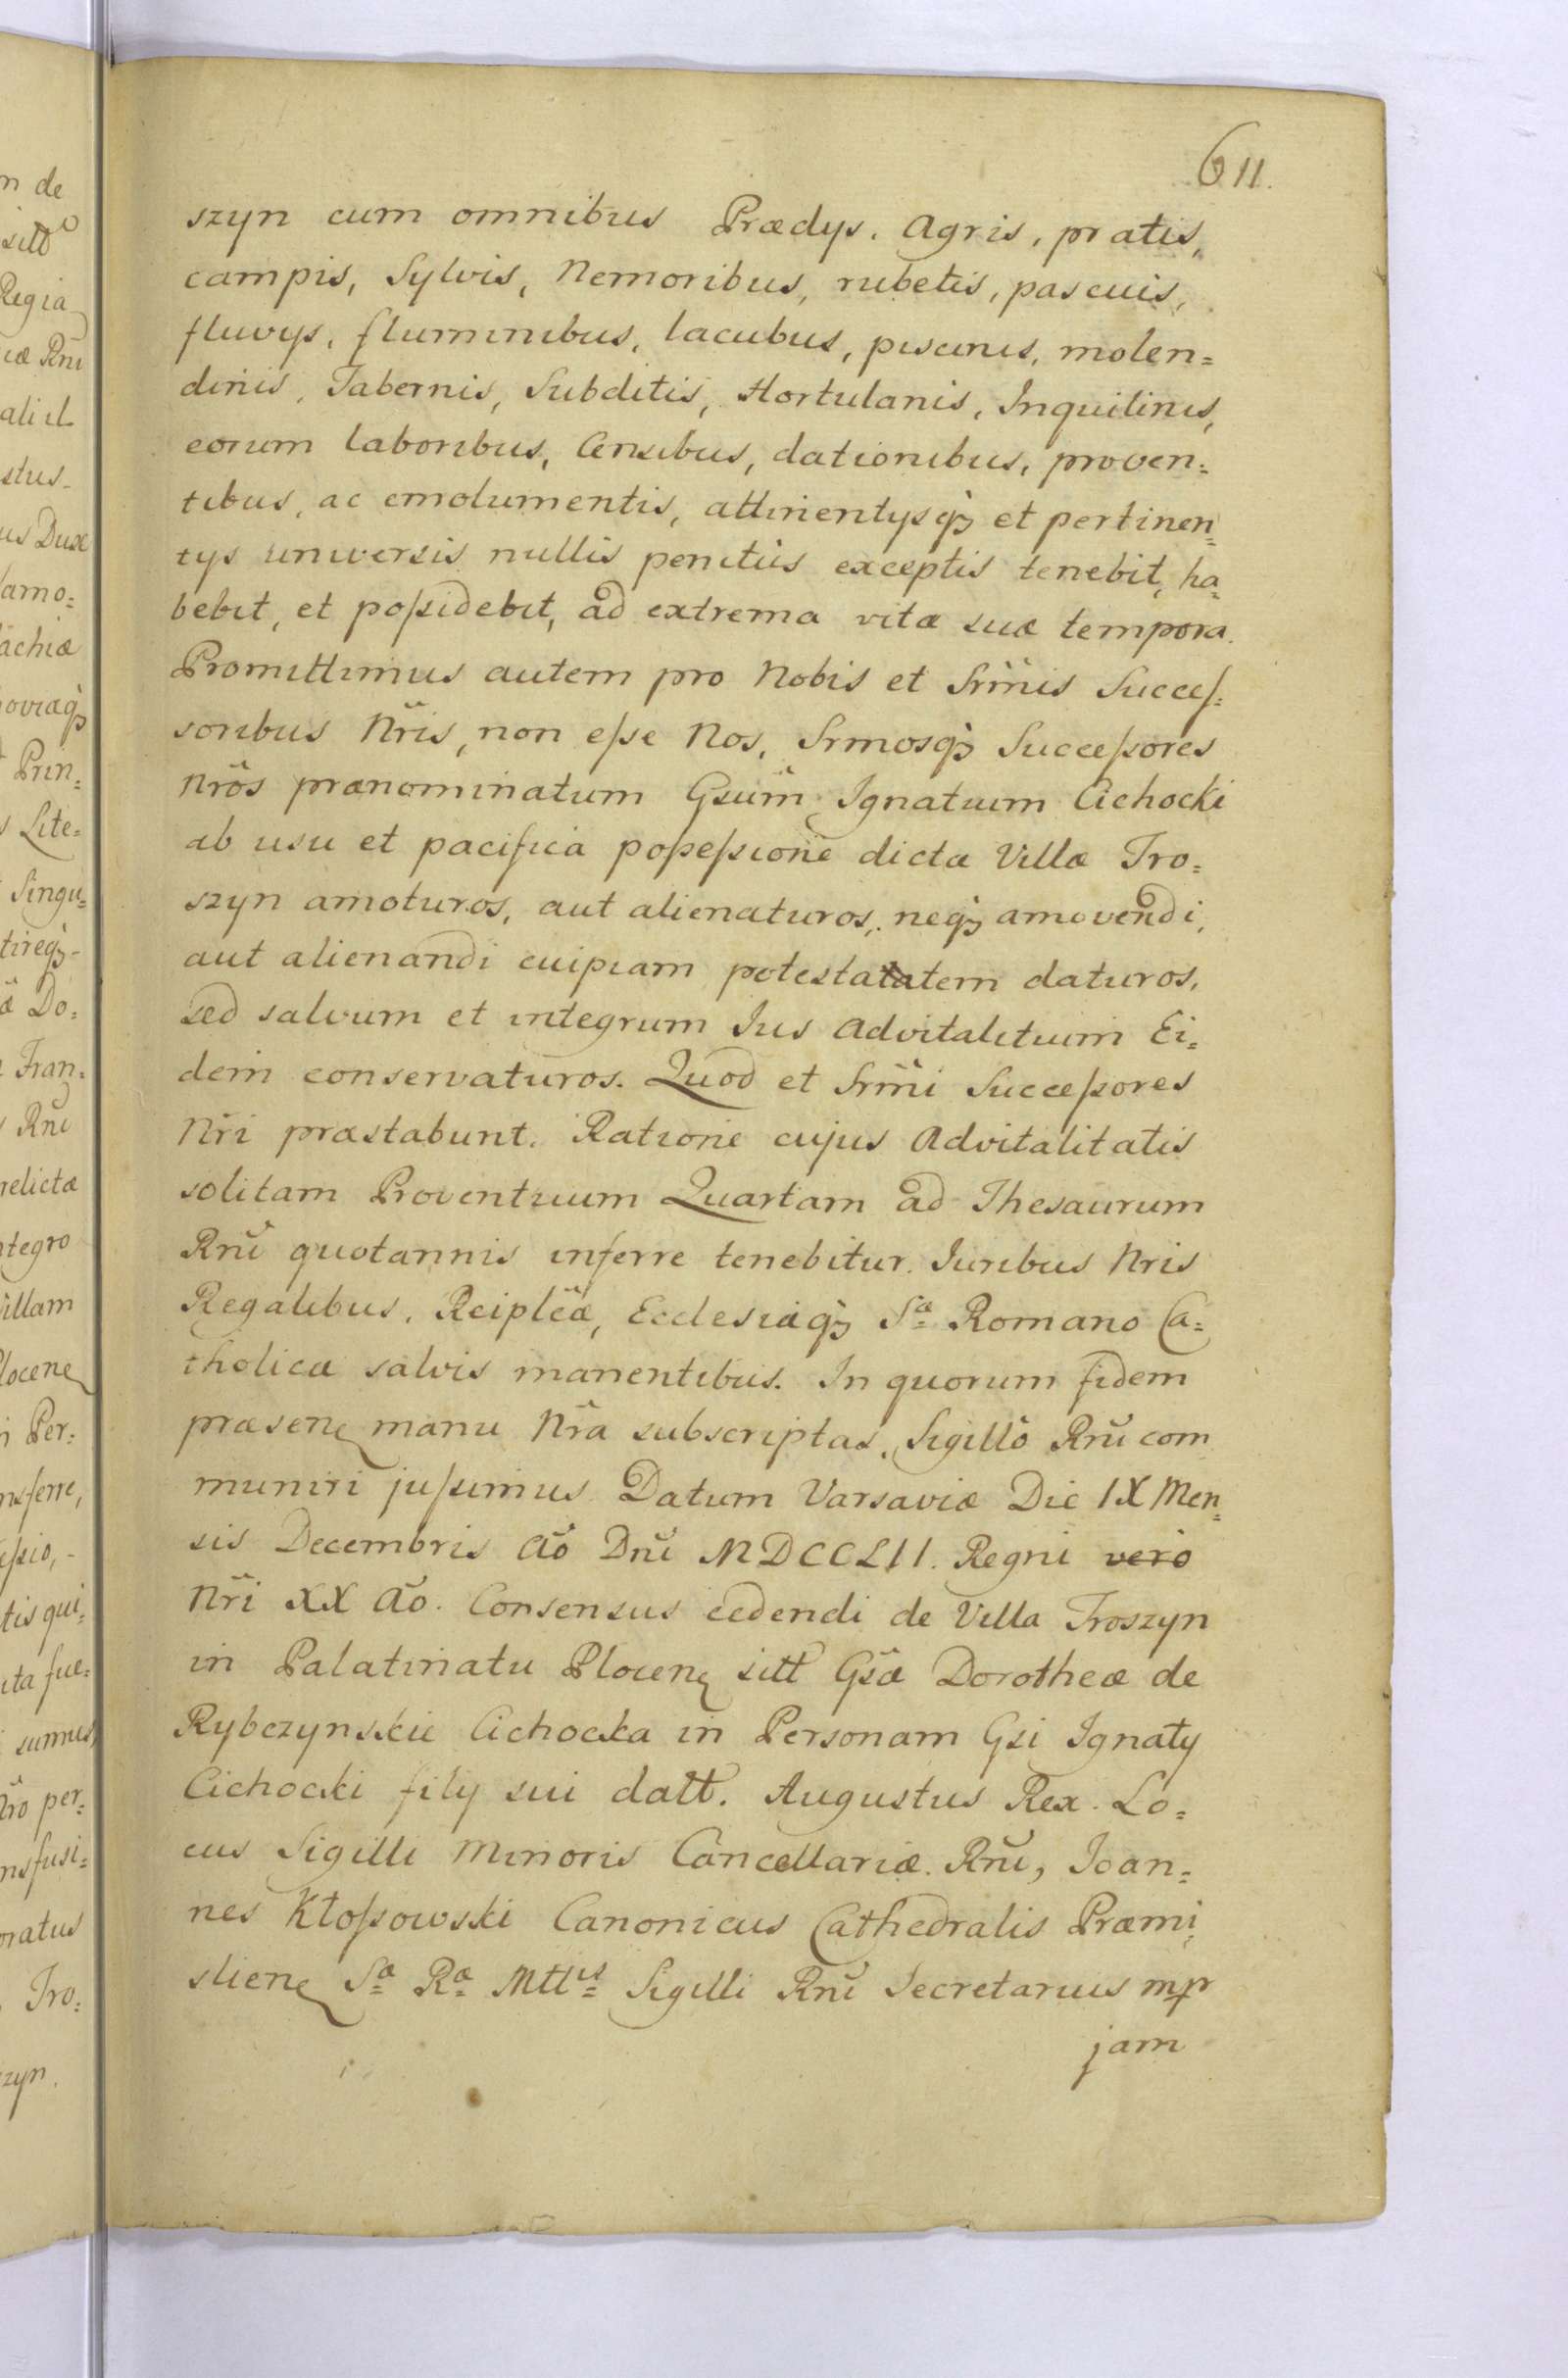 611.
szyn cum omnibus Prædys, Agris, pratis,
campis, Sylvis, Nemoribus, rubetis, pascuis,
fluvys, fluminibus, lacubus, piscinis, molen=
dinis, Tabernis, Subditis, Hortulanis, Inquilinis,
eorum laboribus, Censibus, dationibus, proven=
tibus, ac emolumentis, attinentysq3 et pertinen=
tys universis nullis penitùs exceptis tenebit, ha=
bebit, et poſsidebit, ad extrema vitæ suæ tempora.
Promittimus autem pro Nobis et Srm̃is Succeſ=
soribus Nr̃is, non eſse Nos, Srmosq3 Succeſsores
Nrõs prænominatum Gsum̃ Ignatium Cichocki
ab usu et pacifica poſseſsione dictæ Villæ Tro=
szyn amoturos, aut alienaturos, neq3 amovendi,
aut alienandi cuipiam potestatatem daturos,
sed salvum et integrum Jus Advitalitium Ei=
dem conservaturos. Quod et Srm̃i Succeſsores
Nr̃i præstabunt. Ratione cujus Advitalitatis
solitam Proventuum Quartam ad Thesaurum
Rnĩ quotannis inferre tenebitur. Juribus Nris
Regalibus, Reipl̃cæ, Ecclesiæq3 Sæ Romano Ca=
tholicæ salvis manentibus. In quorum fidem
præsenẽ manu Nr̃a subscriptas, Sigillô Rnĩ com
muniri juſsimus. Datum Varsaviæ Die IX Men=
sis Decembris Aõ Dnĩ MDCCLII. Regni vero
Nr̃i XX Aõ. Consensus cedendi de Villa Troszyn
in Palatinatu Plocenẽ sitt Gsæ̃ Dorotheæ de
Rybczynskie Cichocka in Personam Gsi Ignaty
Cichocki fily sui datt. Augustus Rex. Lo=
cus Sigilli Minoris Cancellariæ Rnĩ, Joan=
nes Kłoſsowski Canonicus Cathedralis Præmi=
slienẽ Sæ Ræ Mttis Sigilli Rnĩ Secretarius mpr
jam
m de
sitt
Regia
iæ Rnĩ
stus
us Dux
amo=
achiæ
oviæq3
Prin=
Lite=
Singu=
tireq3
Do=
Fran=
Rnĩ
relictæ
ntegro
Villam
Plocenẽ
Per=
nsferre,
eſsio,
tis qui=
ita fue=
sumus,
Nr̃o per=
nsfusi=
oratus
Tro=
zyn.